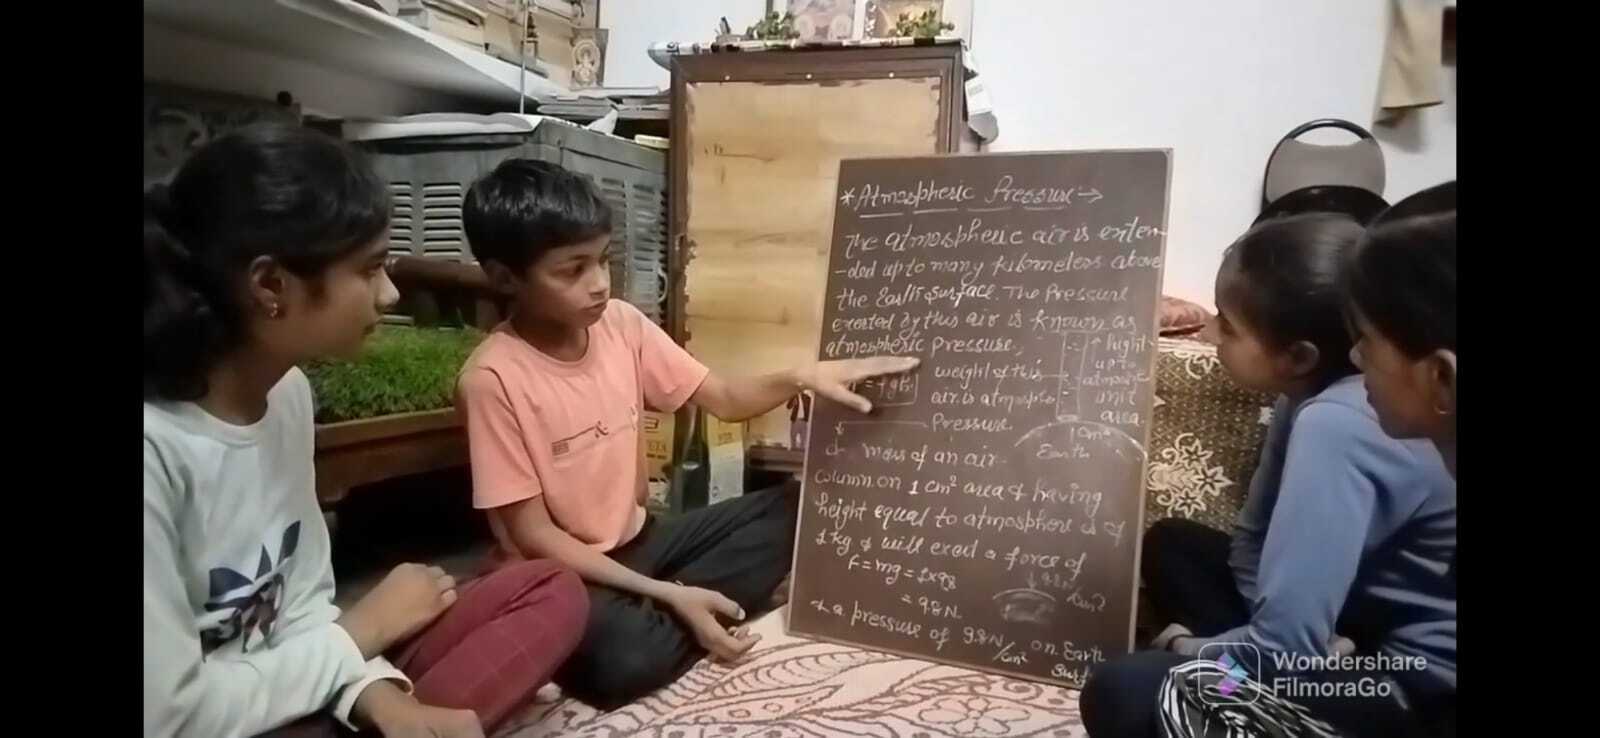 * Atmospheric Pressure:→
The atmospheric air is exten-
-ded upto many kilometers above
the Earth surface. The Pressure
exerted by this air is known as
atmospheric pressure.
weight of this
air is atmosphe
Pressure
hight
upto
unit
area
1 cm²
Earth
mass of an air
column on 1 cm² area & having
height equal to atmosphere is of
1 kg & will exert a force of
F = mg = 1×9.8
= 9.8 N.
a pressure of 9.8 N/cm² on Earth
Wondershare
FilmoraGo